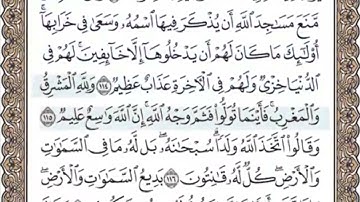 مَّنَعَ مَسَٰجِدَ ٱللَّهِ أَن يُذۡكَرَ فِيهَا ٱسۡمُهُۥ وَسَعَىٰ فِي خَرَابِهَآۚ
أُوْلَٰٓئِكَ مَا كَانَ لَهُمۡ أَن يَدۡخُلُوهَآ إِلَّا خَآئِفِينَۚ لَهُمۡ فِي
ٱلدُّنۡيَا خِزۡيٞ وَلَهُمۡ فِي ٱلۡأٓخِرَةِ عَذَابٌ عَظِيمٞ ١١٤ وَلِلَّهِ ٱلۡمَشۡرِقُ
وَٱلۡمَغۡرِبُۚ فَأَيۡنَمَا تُوَلُّواْ فَثَمَّ وَجۡهُ ٱللَّهِۚ إِنَّ ٱللَّهَ وَٰسِعٌ عَلِيمٞ ١١٥
وَقَالُواْ ٱتَّخَذَ ٱللَّهُ وَلَدٗاۗ سُبۡحَٰنَهُۥۖ بَل لَّهُۥ مَا فِي ٱلسَّمَٰوَٰتِ
وَٱلۡأَرۡضِۖ كُلّٞ لَّهُۥ قَٰنِتُونَ ١١٦ بَدِيعُ ٱلسَّمَٰوَٰتِ وَٱلۡأَرۡضِۖ